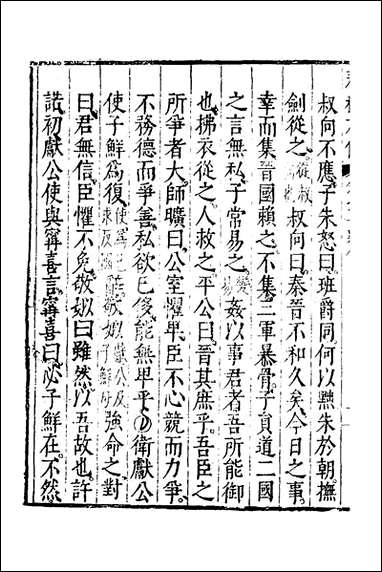 叔向不應。子朱怒曰。班爵同。何以黜朱於朝。撫
劍從之。叔向曰。秦晉不和久矣。今日之事。
幸而集。晉國賴之。不集。三軍暴骨。子員道二國
之言無私。子常易之。姦以事君者。吾所能御
也。拂衣從之。人救之。平公曰。晉其庶乎。吾臣之
所爭者大。師曠曰。公室懼卑。臣不心競而力爭。
不務德而爭善。私欲已侈。能無卑乎。○衛獻公
使子鮮爲復。使爲己求反國辭。敬姒獻公及子鮮母強命之。對
曰。君無信。臣懼不免。敬姒曰。雖然。以吾故也。許
諾。初獻公使與甯喜言。甯喜曰。必子鮮在。不然